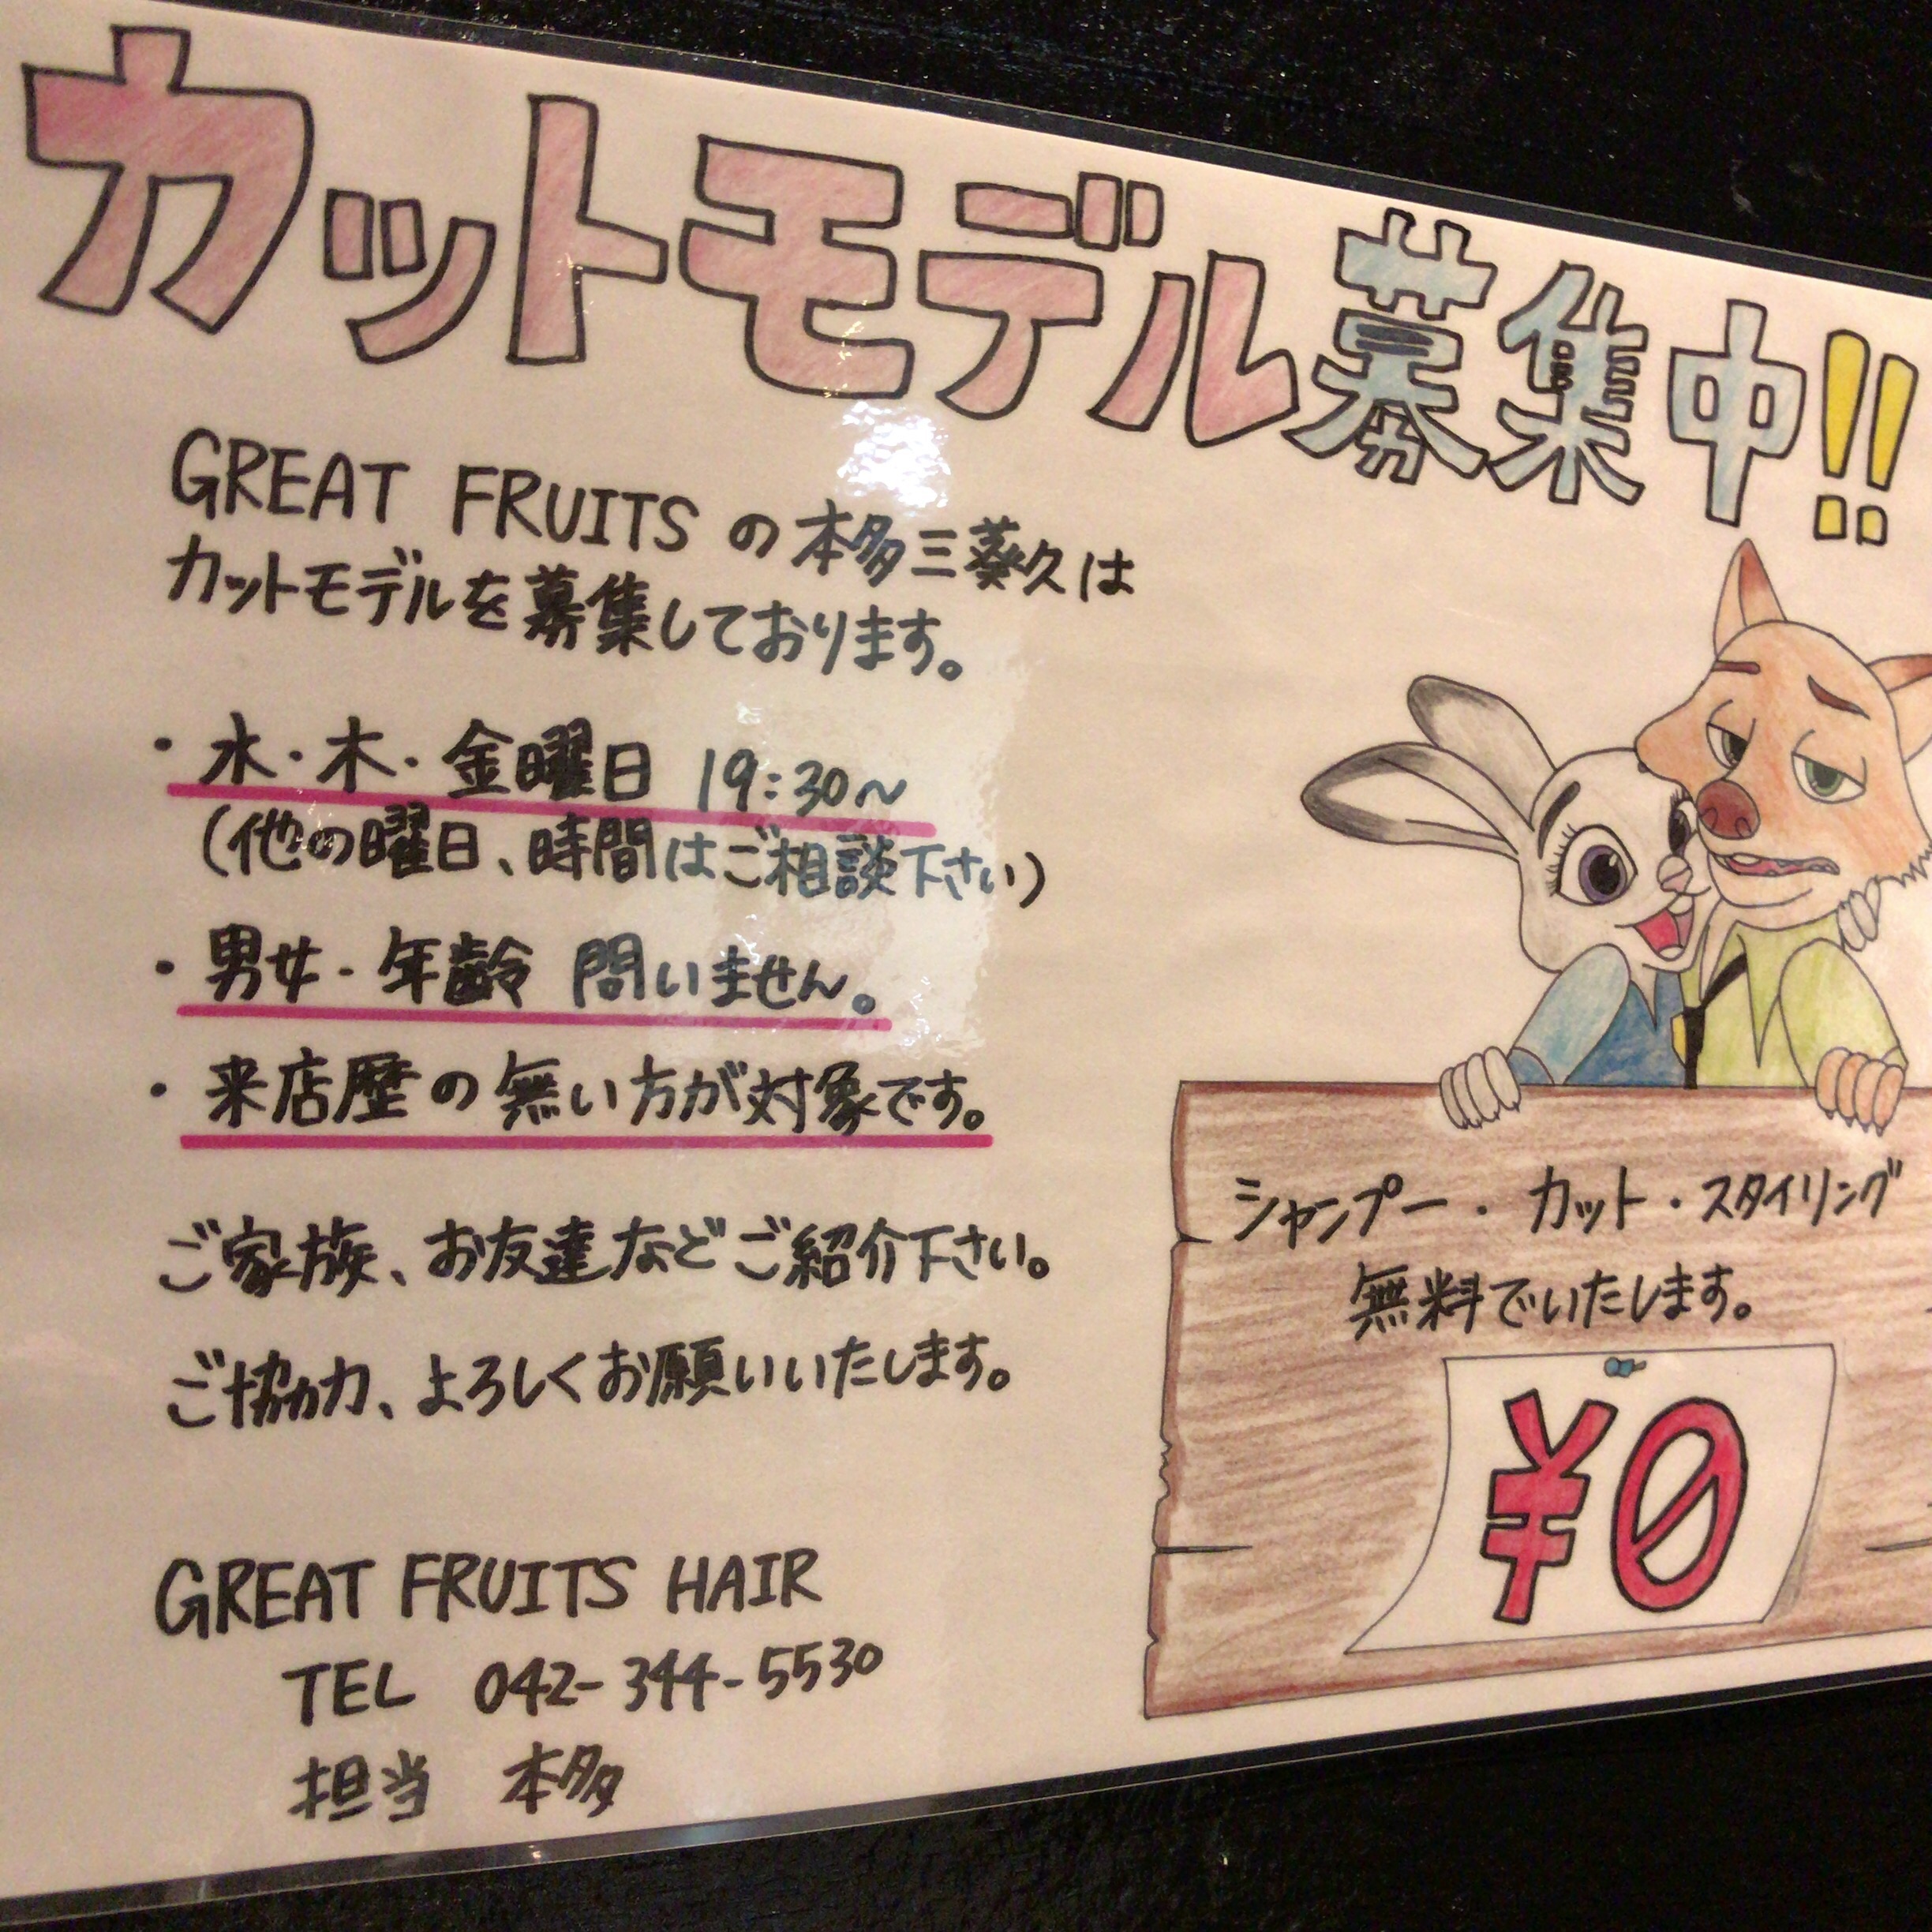 カットモデル募集中!!
GREAT FRUITS の本多三葵久は
カットモデルを募集しております。
・水・木・金曜日 19:30〜
(他の曜日、時間はご相談下さい)
・男女・年齢 問いません。
・来店歴の無い方が対象です。
ご家族、お友達などご紹介下さい。
ご協力、よろしくお願いいたします。
GREAT FRUITS HAIR
TEL 042-344-5530
担当 本多
シャンプー・カット・スタイリング
無料でいたします。
¥0